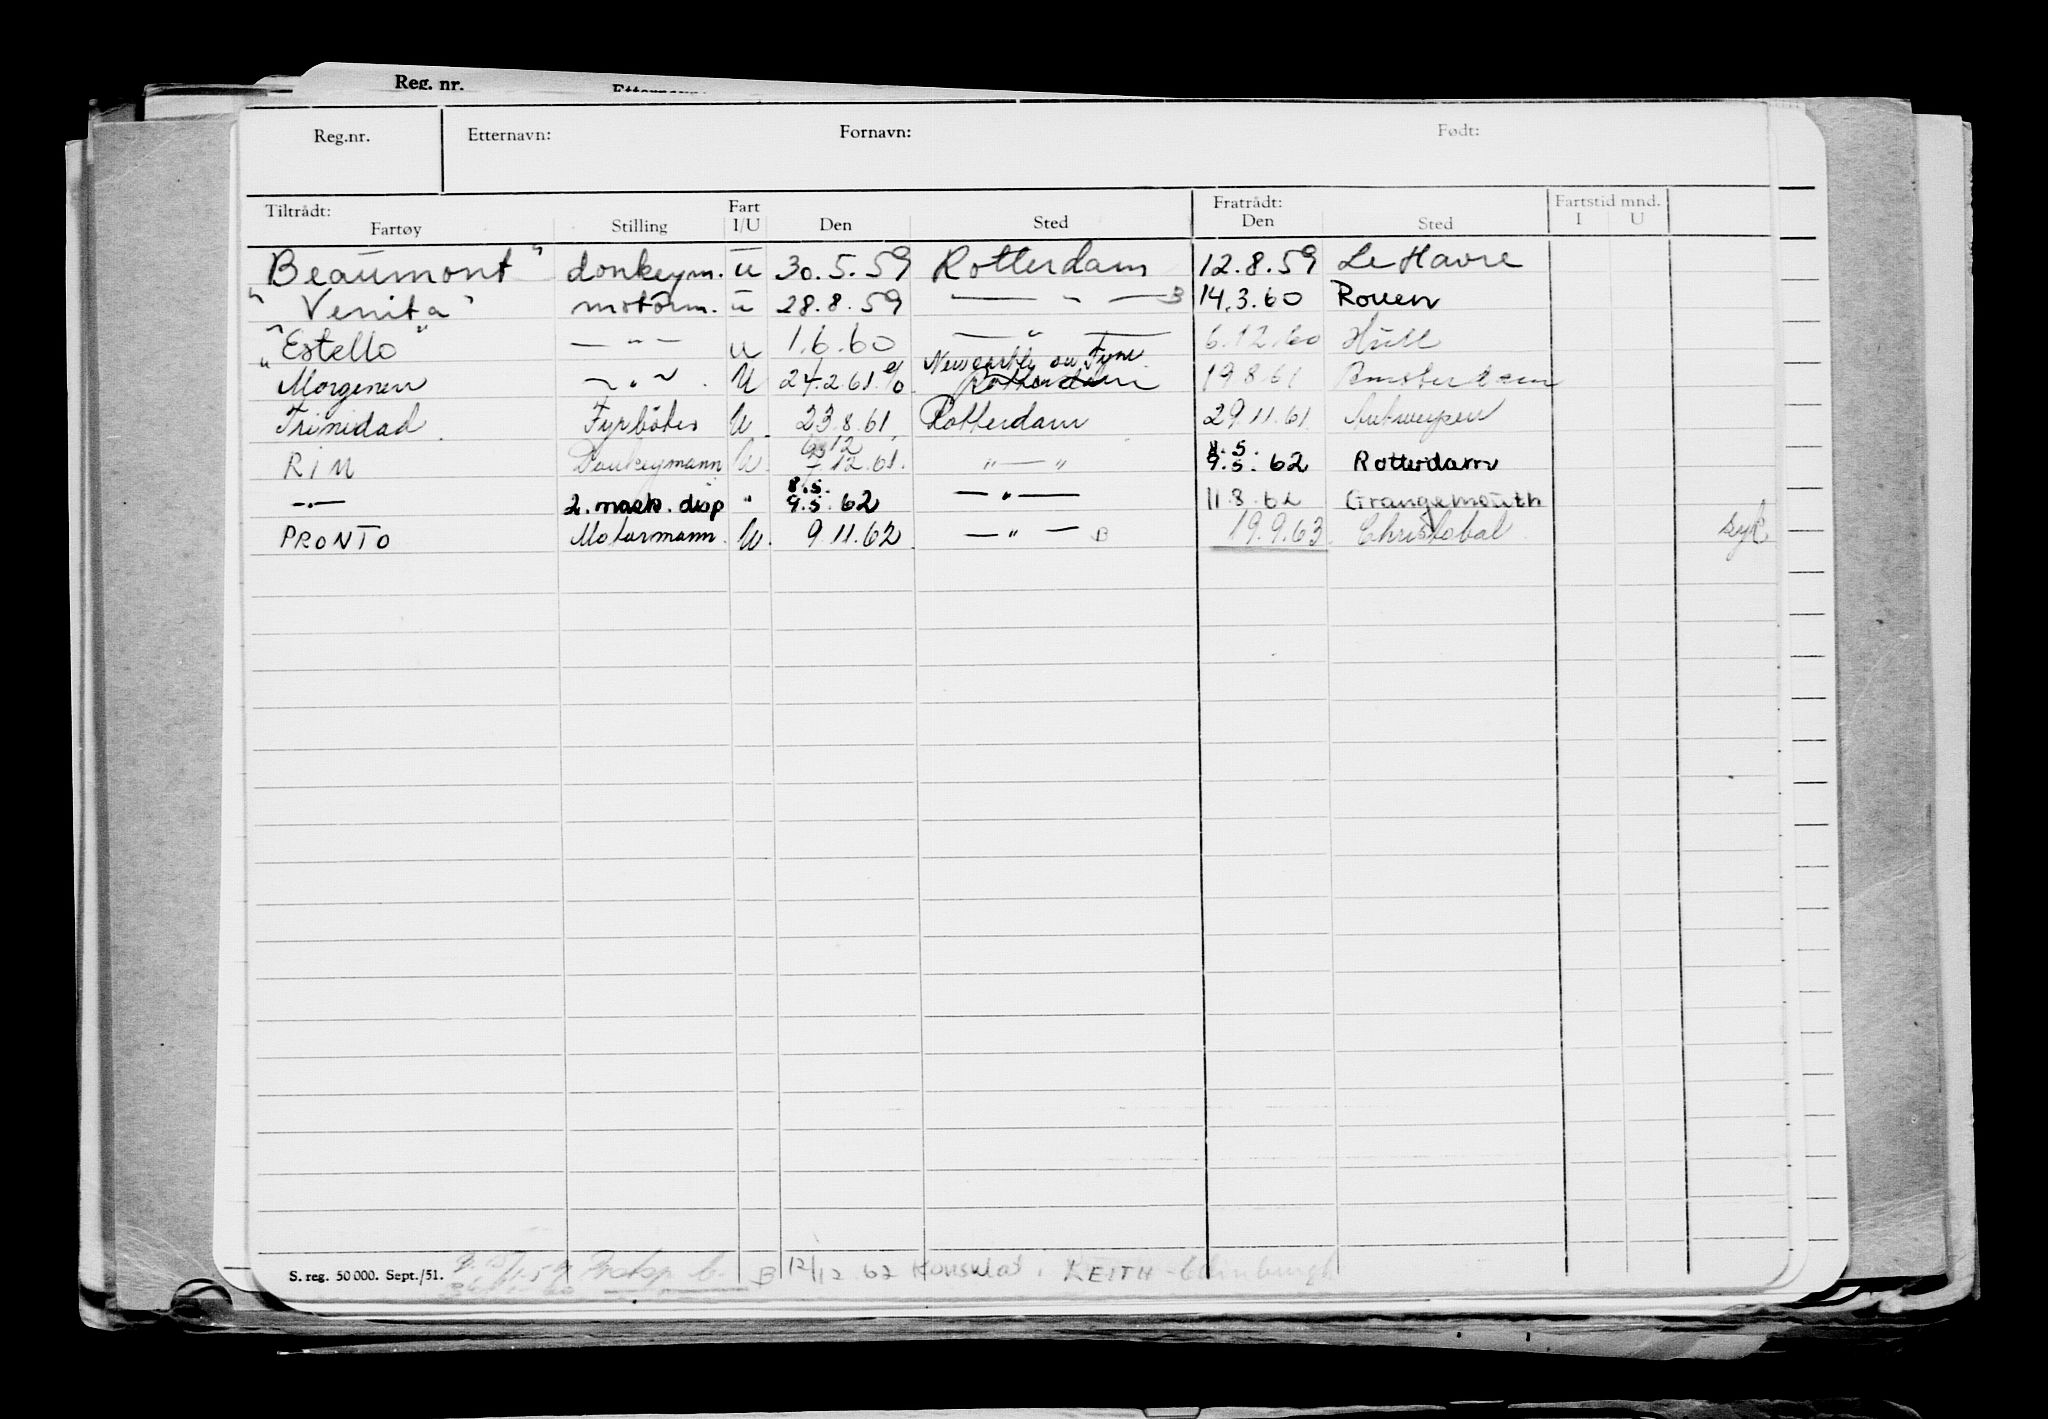 Reg. nr. Etternavn:
Reg.nr. Etternavn: Fornavn: Født:
Tiltrådt: Fart Fratrådt: Fartstid mnd.
Fartøy Stilling I/U Den Sted Den Sted I U
Beaumont" donkeym. u 30.5.59 Rotterdam 12.8.59 Le Havre
"Venita" motorm. u 28.8.59 — " — B 14.3.60 Rouen
"Estello" — " — u 1.6.60 — " — 6.12.60 Hull
Newcastle on Tyne
"Morgenen — " — U 24.2.61. Rotterdam 19.8.61 Amsterdam
Trinidad Fyrbøter U 23.8.61 Rotterdam 29.11.61 Antwerpen
12 8.5.
RIM Donkeymann U 12.61. " — " 9.5.62 Rotterdam
8.5.
— " — 2. mask. disp " 9.5.62 — " — 11.8.62 Grangemouth
PRONTO Motormann U. 9.11.62 — " — B 19.9.63 Christobal syk
S. reg. 50 000. Sept./51. B 12/12 62 Konsulat i LEITH - Edinburgh